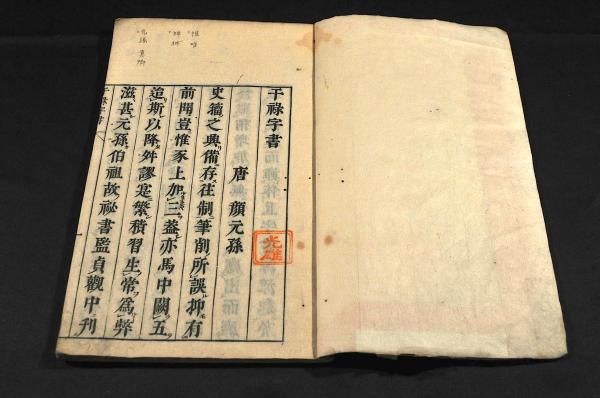 干祿字書
唐 顔元孫
史籀之興備存往制筆削所誤抑有
前聞豈惟豕上加三蓋亦馬中闕五
迨斯以降舛謬寔繁積習生常爲弊
滋甚元孫伯祖故祕書監貞觀中刊
干祿字書
光雄